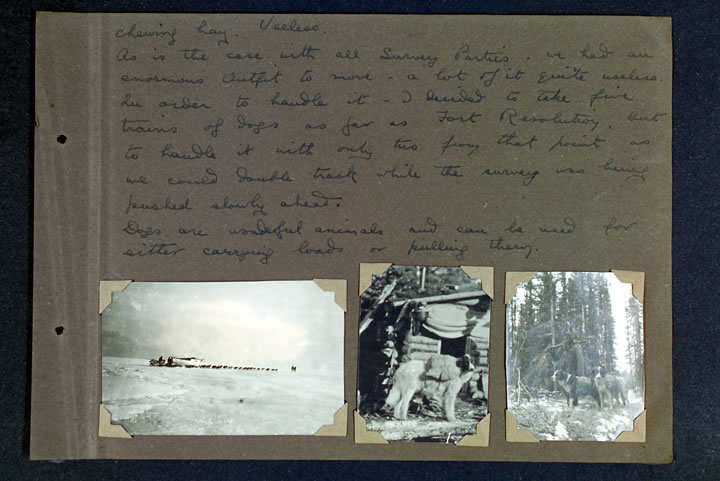 chewing hay. Useless.
As is the case with all Survey Parties, we had an
enormous Outfit to move - a lot of it quite useless.
In order to handle it - I decided to take five
trains of dogs as far as Fort Resolution, but
to handle it with only two from that point as
we could double track while the survey was being
pushed slowly ahead.
Dogs are wonderful animals and can be used for
either carrying loads or pulling them.